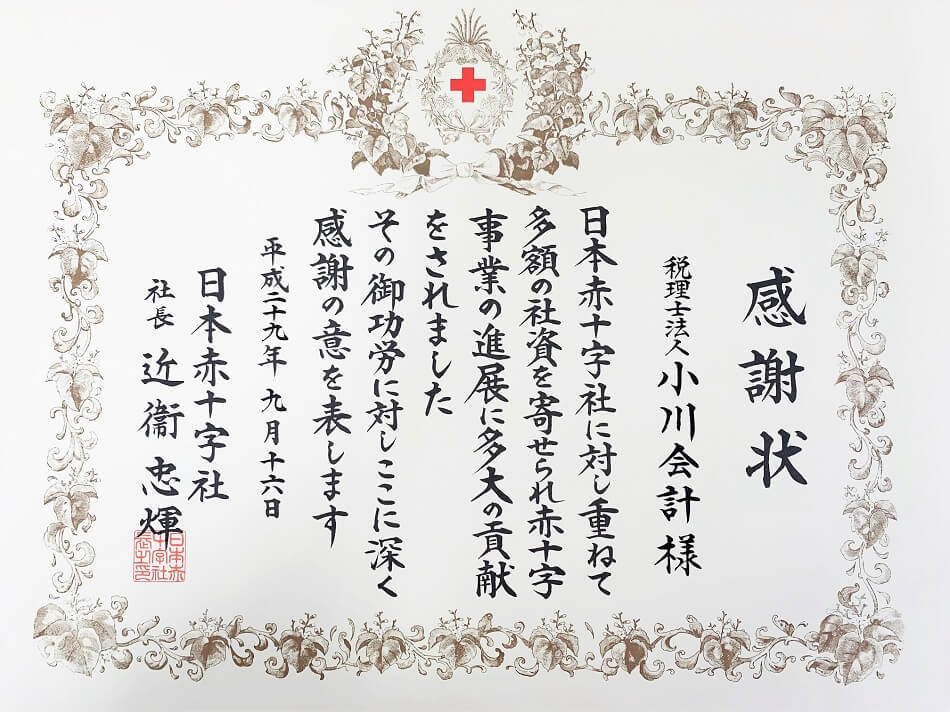 感謝状
税理士法人 小川会計 様
日本赤十字社に対し重ねて
多額の社資を寄せられ赤十字
事業の進展に多大の貢献
をされました
その御功労に対しここに深く
感謝の意を表します
平成二十九年 九月十六日
日本赤十字社
社長 近衞忠煇
日本赤十字社社長之印